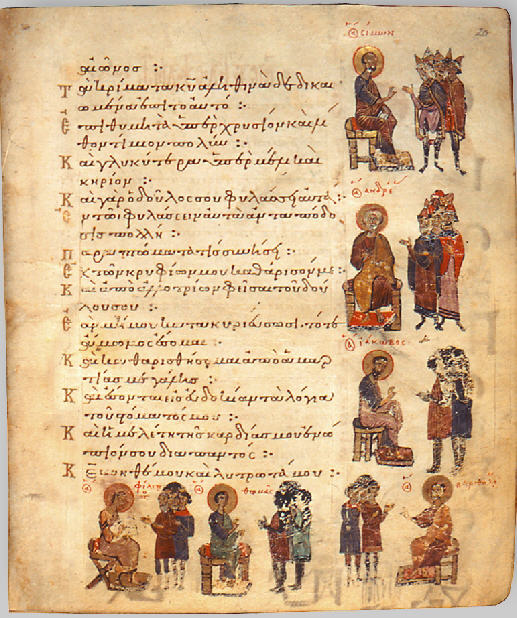 αἰῶνος :·
Τὰ κρίματα κ̅υ̅ ἀληθινὰ δεδικαι
ωμένα ἐπὶ τὸ αὐτό :·
Ἐπιθυμητὰ ὑπὲρ χρυσίον καὶ λί
θον τίμιον πολύν :·
Καὶ γλυκύτερα ὑπὲρ μέλι καὶ
κηρίον :·
Καὶ γὰρ ὁ δοῦλός σου φυλάσσει αὐτά :·
Ἐν τῷ φυλάσσειν αὐτὰ ἀνταπόδο
σις πολλή :·
Παραπτώματα τίς συνήσει :·
Ἐκ τῶν κρυφίων μου καθάρισόν με :·
Καὶ ἀπὸ ἀλλοτρίων φεῖσαι τοῦ δού
λου σου :·
Ἐὰν μή μου κατακυριεύσωσι τότε
ἄμωμος ἔσομαι :·
Καὶ καθαρισθήσομαι ἀπὸ ἁμαρ
τίας μεγάλης :·
Καὶ ἔσονται εἰς εὐδοκίαν τὰ λόγια
τοῦ στόματός μου :·
Καὶ ἡ μελέτη τῆς καρδίας μου ἐνώ
πιόν σου διὰ παντός :·
Κ̅ε̅ βοηθέ μου καὶ λυτρωτά μου :·
σίμων
ἀνδρέ
ἰάκωβος
φίλιππος
θωμᾶς
βαρθολ